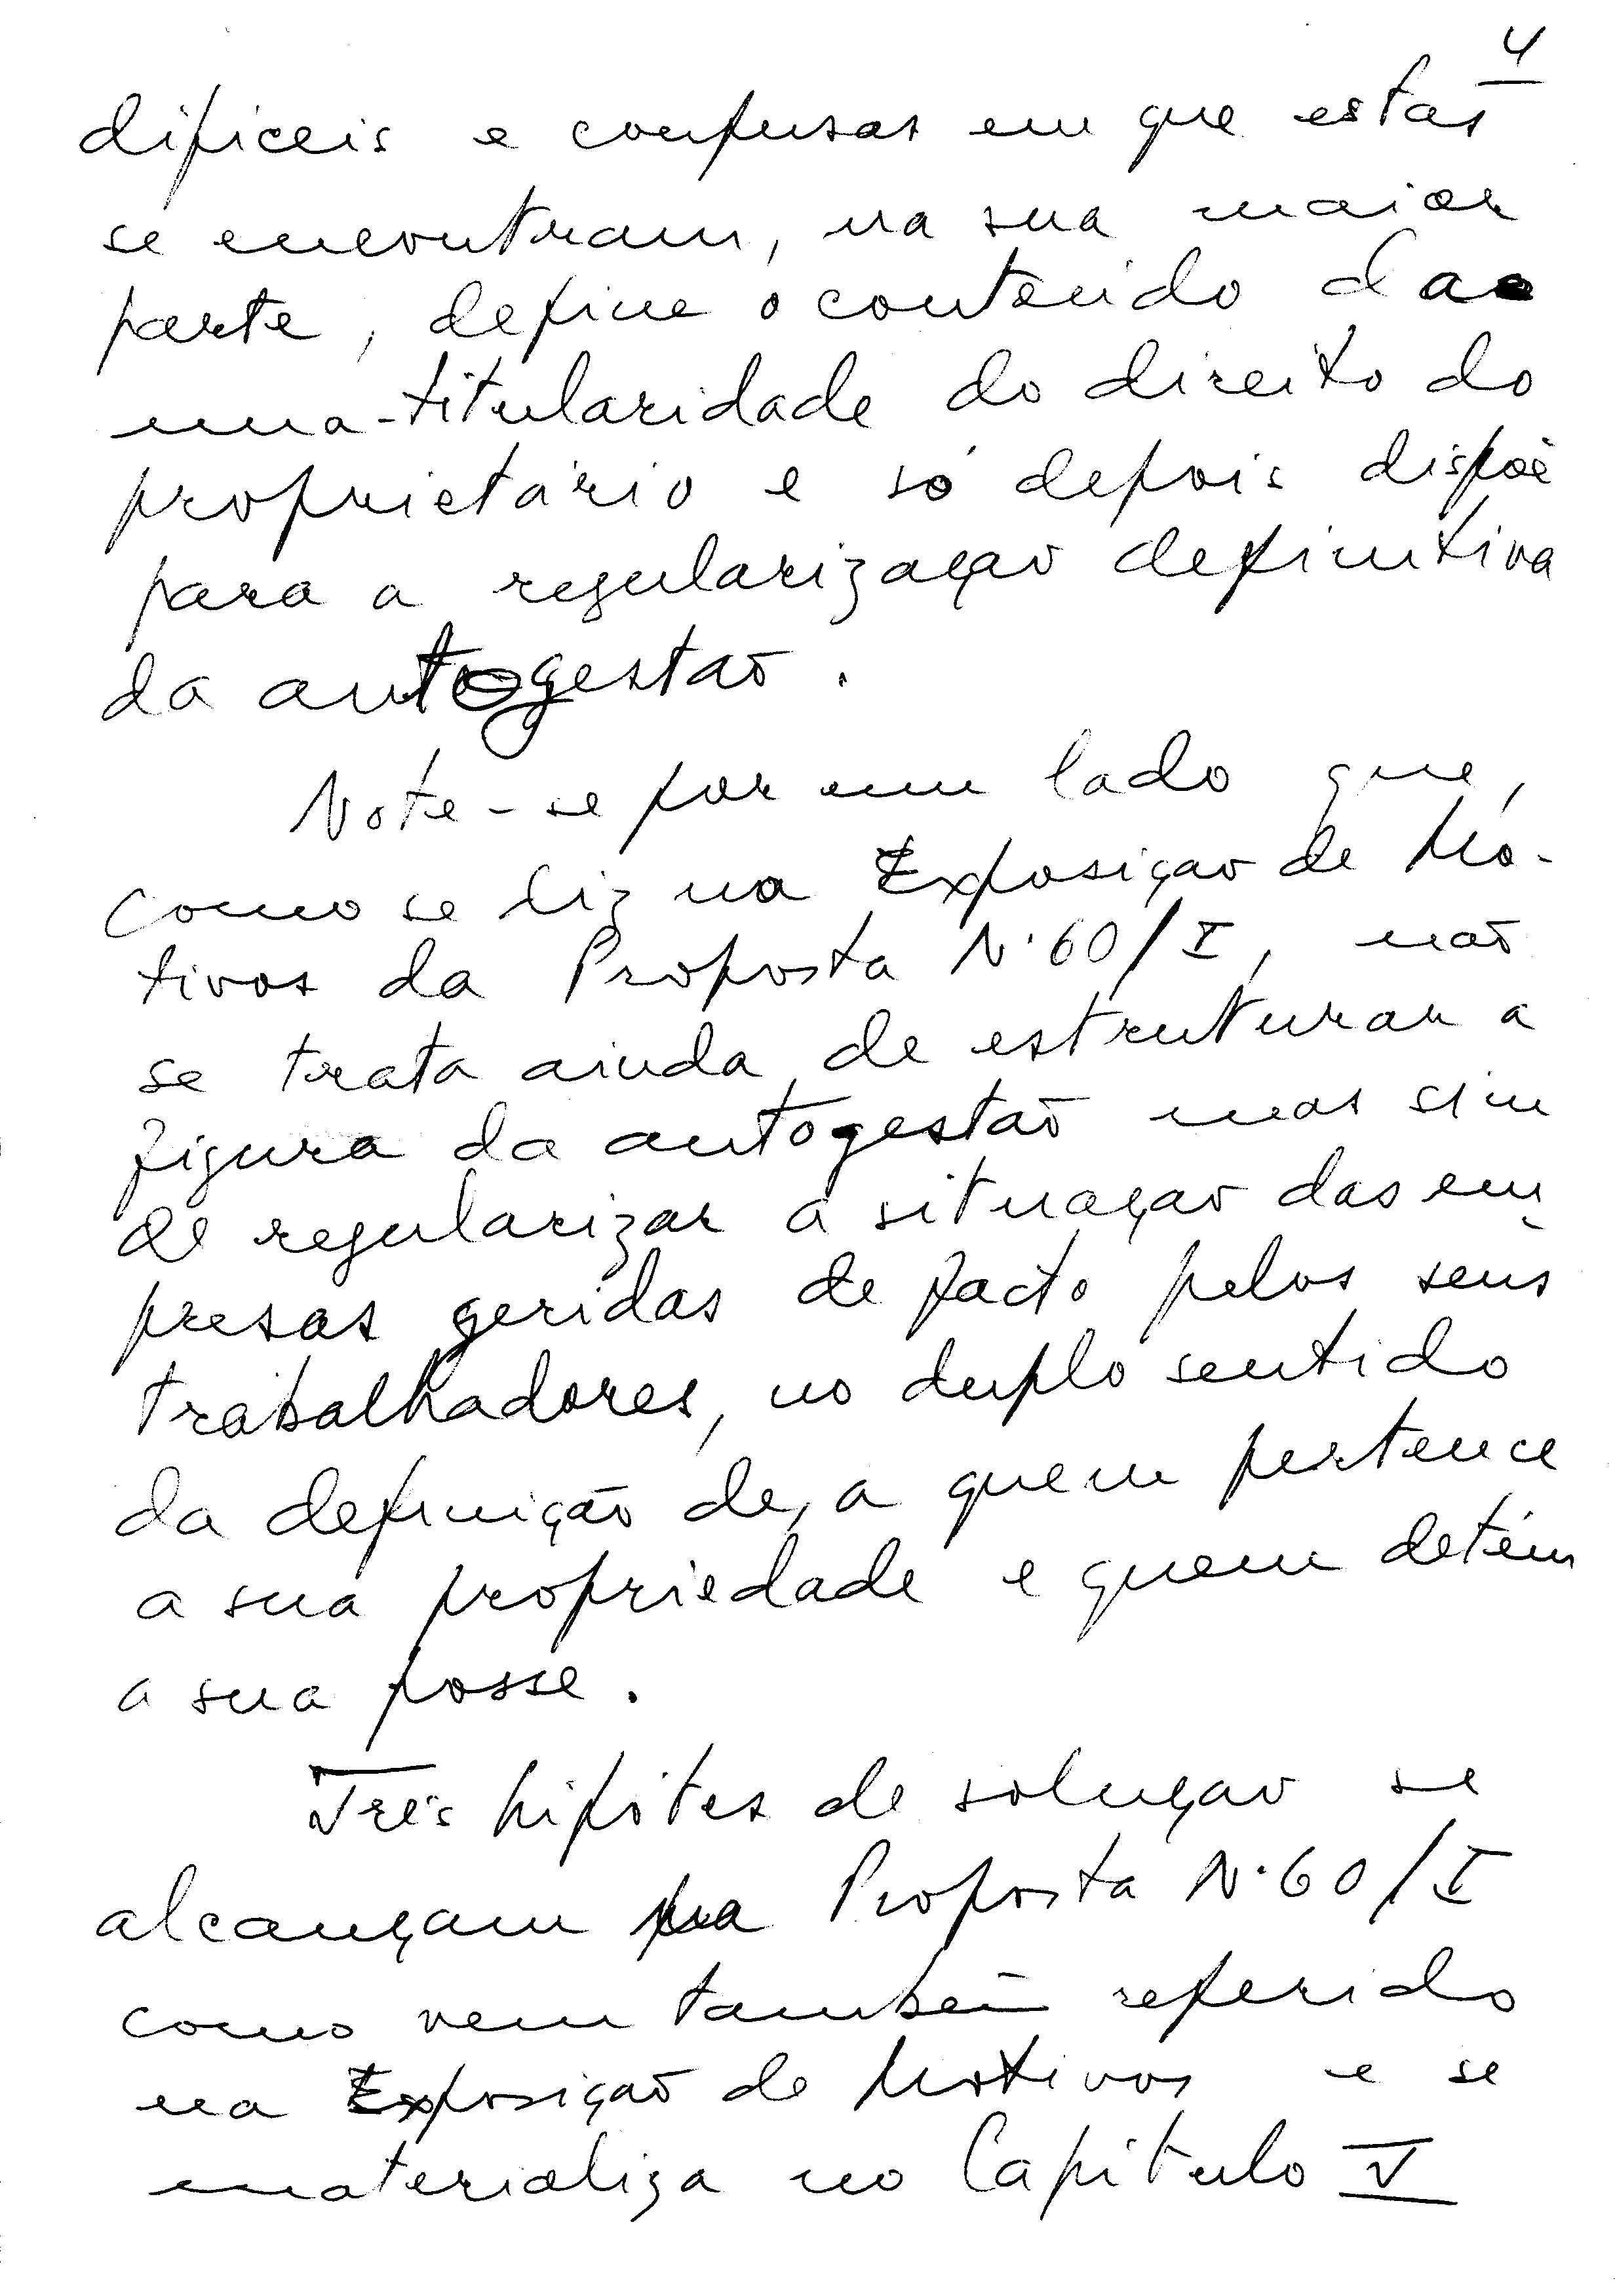 4
difíceis e confusas em que estas
se encontram, na sua maior
parte, define o conteúdo da
nua-titularidade do direito do
proprietário e só depois dispõe
para a regularização definitiva
da autogestão.
Note-se por um lado que,
como se diz na Exposição de Mo-
tivos da Proposta N.60/I, não
se trata ainda de estruturar a
figura da autogestão mas sim
de regularizar a situação das em-
presas geridas de facto pelos seus
trabalhadores, no duplo sentido
da definição de, a quem pertence
a sua propriedade e quem detém
a sua posse.
Três hipótes de solução se
alcançam na Proposta N.60/I
como vem também referido
na Exposição de Motivos e se
materializa no Capítulo V